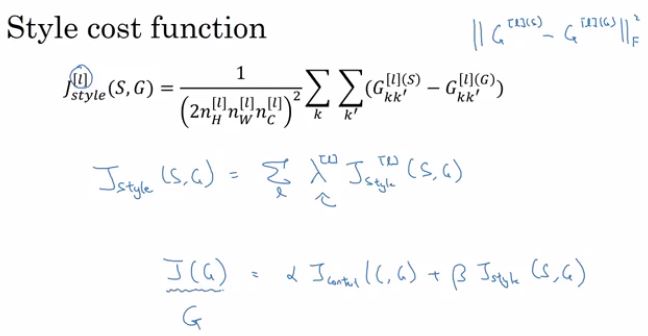 Style cost function
‖G^{[l](S)} − G^{[l](G)}‖²_F
J^{[l]}_{style}(S, G) = 1 / (2n_H^{[l]} n_W^{[l]} n_C^{[l]})² ∑_k ∑_{k′} (G_{kk′}^{[l](S)} − G_{kk′}^{[l](G)})
J_{style}(S,G) = ∑_l λ^{[l]} J_{style}^{[l]}(S,G)
J(G) = α J_{content}(C,G) + β J_{style}(S,G)
G